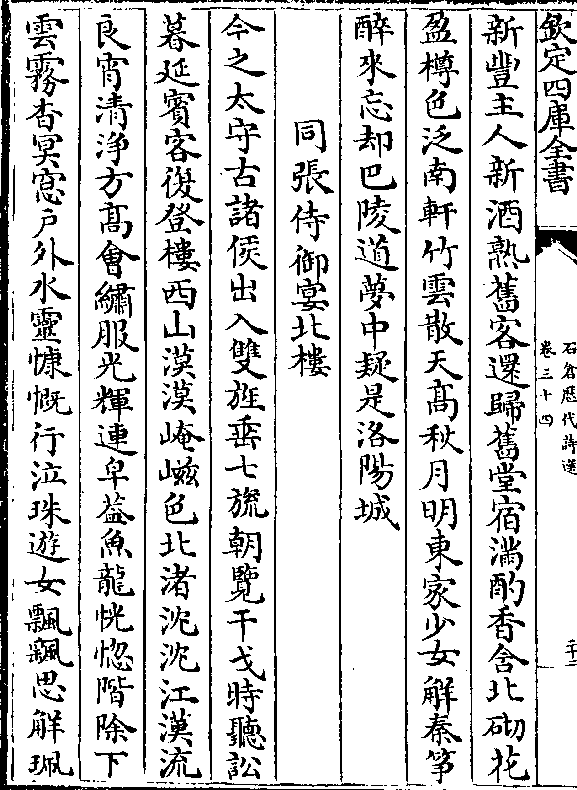 欽定四庫全書
石倉歷代詩選
卷三十四
新豐主人新酒熟舊客還歸舊堂宿滿酌香含北砌花
盈樽色泛南軒竹雲散天高秋月明東家少女解秦箏
醉來忘却巴陵道夢中疑是洛陽城
同張侍御宴北樓
今之太守古諸侯出入雙旌垂七旒朝覽干戈時聽訟
暮延賓客復登樓西山漠漠崦嵫色北渚沈沈江漢流
良宵清淨方高會繡服光輝連皁葢魚龍恍惚階除下
雲霧杳冥窓戶外水靈慷慨行泣珠遊女飄飄思解珮